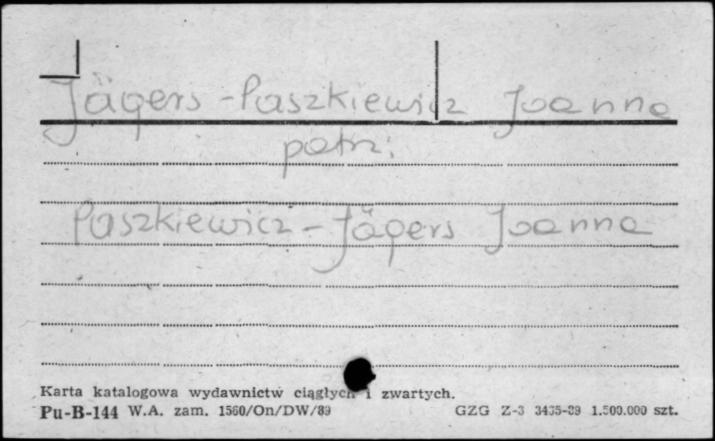 Jägers-Paszkiewicz Joanna
patrz:
Paszkiewicz-Jägers Joanna
Karta katalogowa wydawnictw ciągłych i zwartych.
Pu-B-144 W.A. zam. 1560/On/DW/89 GZG Z-3 3435-89 1.500.000 szt.